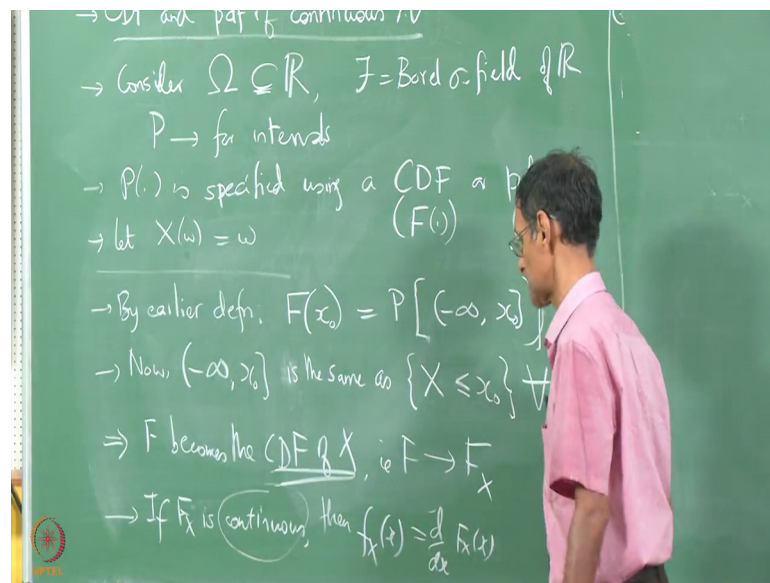 → CDF and pdf of continuous r.v
→ Consider Ω ⊆ ℝ, F = Borel σ-field of ℝ
P → for intervals
→ P(.) is specified using a CDF or
(F(.)
→ let X(ω) = ω
→ By earlier defn. F(x₀) = P[(-∞, x₀]]
→ Now, (-∞, x₀] is the same as {X ≤ x₀} ∀
⇒ F becomes the CDF of X, ie F → F_X
→ If F_X is continuous, then f_X(x) = d/dx F_X(x)
NPTEL